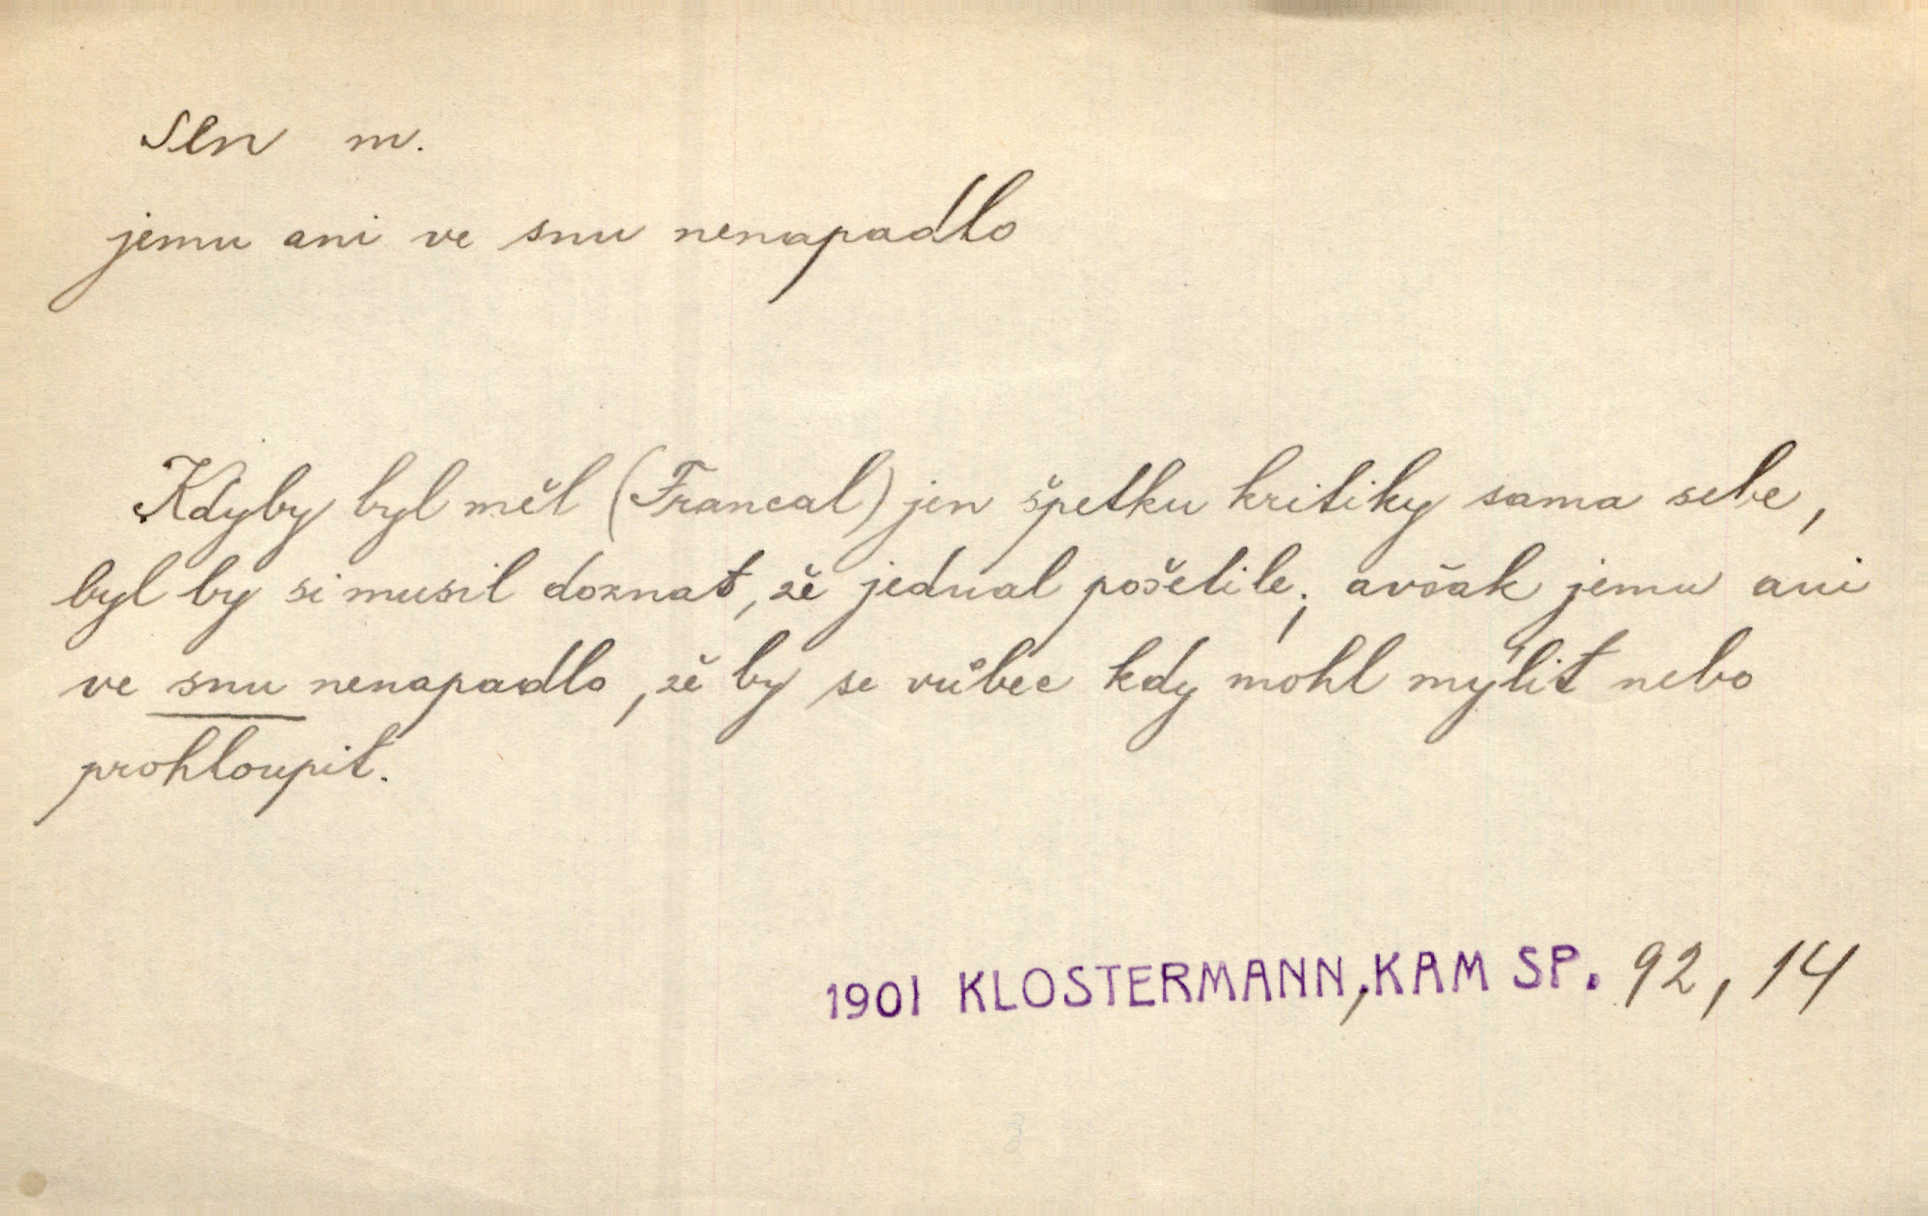 sen m.
jemu ani ve snu nenapadlo
Kdyby byl měl (Francal) jen špetku kritiky sama sebe,
byl by si musil doznat, že jednal pošetile; avšak jemu ani
ve snu nenapadlo, že by se vůbec kdy mohl mýlit nebo
prohloupit.
1901 KLOSTERMANN, KAM SP. 92, 14